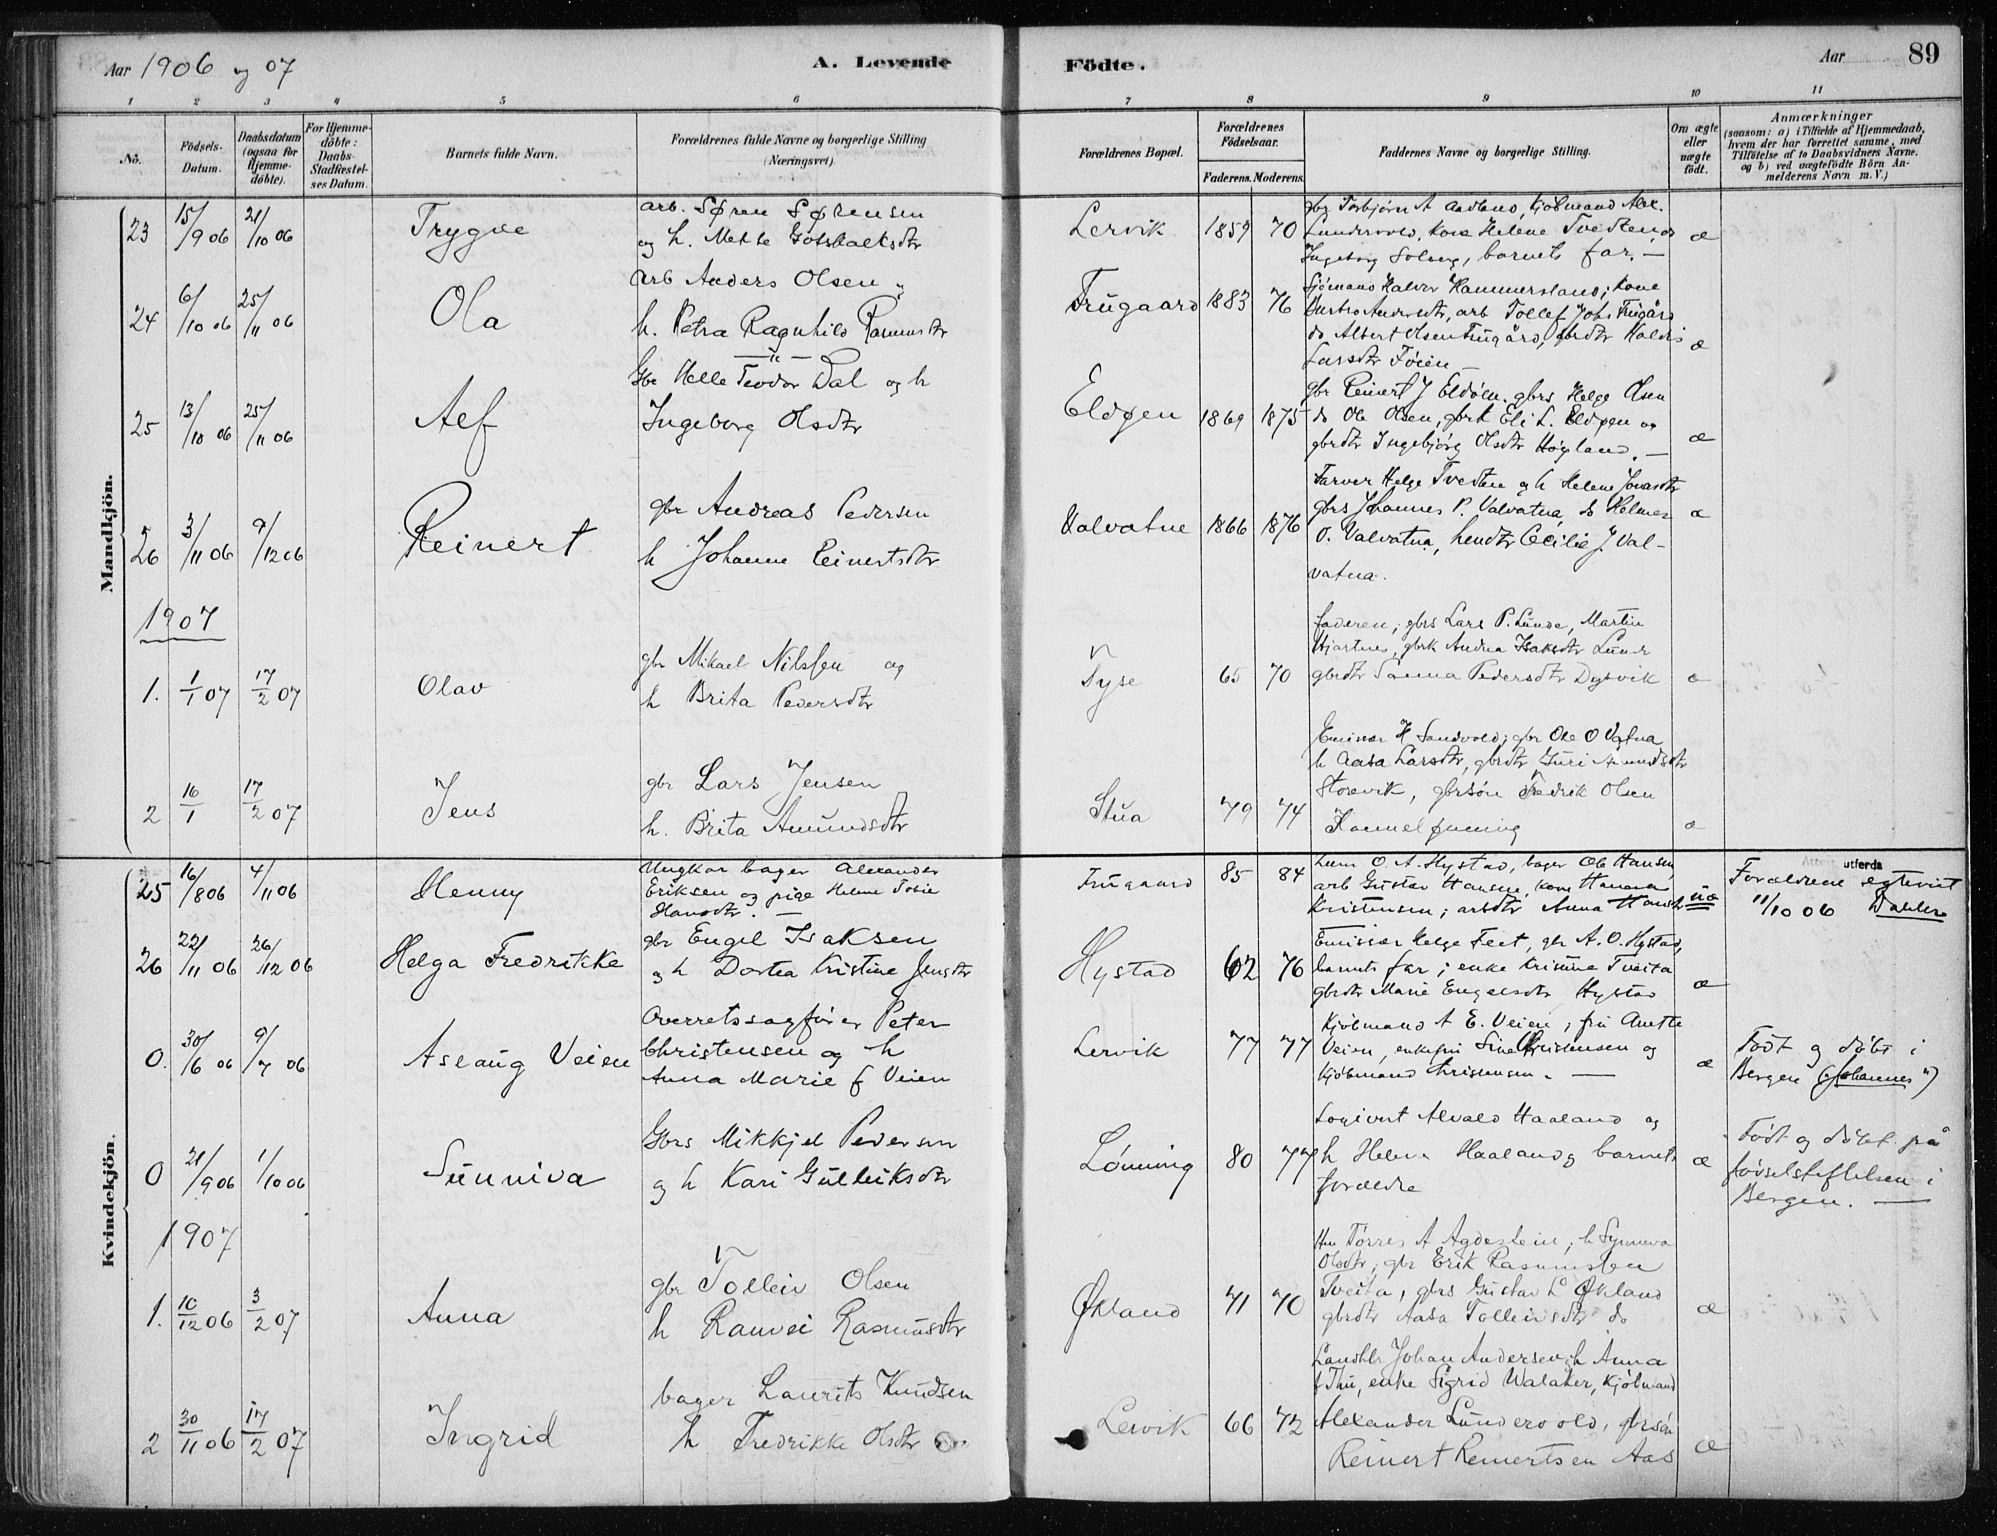 Aar 1906 og 07
A. Levende
Födte.
Aar
89
1 2 3 4 5 6 7 8 9 10 11
No.
Födsels-Datum.
Daabsdatum (ogsaa for Hjemme-döbte).
For Hjemme-döbte: Daabs-Stadfæstel-ses Datum.
Barnets fulde Navn.
Forældrenes fulde Navne og borgerlige Stilling (Næringsvei).
Forældrenes Bopæl.
Forældrenes Födselsaar.
Faderens. Moderens.
Faddernes Navne og borgerlige Stilling.
Om ægte eller uægte födt.
Anmærkninger
(saasom: a) i Tilfælde af Hjemmedaab,
hvem der har forrettet samme, med
Tilföielse af to Daabsvidners Navne,
og b) ved uægtefödte Börn An-
melderens Navn m. V.)
Mandkjön.
23 15/9 06 21/10 06 Trygve
arb. Søren Sørensen
og h. Mette Gotskalksdtr
Lervik 1859 70
gbr Torbjørn A Aadland, Kjøbmand Alex.
Lundervold, kone Helene Tvedten,
Ingeborg Solberg, barnets far. —
æ
24 6/10 06 25/11 06 Ola
arb Anders Olsen
h. Petra Ragnhild Rasmusdtr
Frugaard 1883 76
Sjömand Halvor Hammersland; kone
Andersdtr, arb Tollef Jobs. Frugård
do Albert Olsen Frugård, gbrdtr
Larsdtr Føien
æ
25 13/10 06 25/11 06 Alf
Gbr Helle Teodor Dal og h
Ingeborg Olsdtr
Eldøen 1869 1875
gbr Reinert J Eldøen. gbrs Helge Olsen
do Ole Olsen, gbrk Eli L. Eldøen og
gbrdtr Ingebjörg Olsdtr Høgland. —
æ
26 3/11 06 9/12 06 Reinert
gbr Andreas Pedersen
h Johanne Reinertsdtr
Valvatne 1866 1876
Farver Helge Tvedten og h Helene Jonasdtr
gbrs Johannes P. Valvatna, do Helmer
O. Valvatna, Cecilie J. Val-
vatna.
æ
1907
1. 1/1 07 17/2 07 Olav
gbr Mikael Nilssen og
h Brita Pedersdtr
Tyse 65 70
faderen; gbrs Lars P. Lunde, Martin
Hjartnes, gbrk Andrea Isaksdtr Lunde
gbrdtr Sanna Pedersdtr Dysvik
æ
2 16/1 17/2 07 Jens
gbr Lars Jensen
h. Brita Amundsdtr
Stua 79 74
Emissær H Sandvold; gbr Ole O Vatna
h Aasa Larsdtr, gbrdtr Guri Amundsdtr
Storevik, gbrsön Fredrik Olsen
æ
Kvindekjön.
25 16/8 06 4/11 06 Henny
Ungkar bager Alexander
Eriksen og pige Helene Tobie
Hansdtr. —
Frugaard 85 84
O. A. Hystad, bager Ole Hansen,
arb Gustav Hansen, kone Hanna
Kristensen; arbdtr Anna Hansdtr
uæ
Attest utferda
Forældrene egteviet
11/10 06
26 22/11 06 26/12 06 Helga Fredrikke
gbr Engel Isaksen
og h Dortea Kristine Jensdtr
Hystad 62 76
Emissær Helge Feet, gbr A. O. Hystad,
barnets far; enke Kristine Tveita
gbrdtr Marie Engelsdtr Hystad
æ
0. 30/6 06 9/7 06 Aslaug Veien
Overretssagförer Peter
Christensen og h
Anna Marie f Veien
Lervik 77 77
Kjöbmand A E. Veien; fru Anette
Veien, enkefru Sina Christensen og
Kjöbmand Christensen. —
æ
Födt og döbt i
Bergen (Johannes")
0 21/9 06 1/10 06 Sunniva
Gbrs Mikkjel Pedersen
og h Kari Gulleiksdtr
Lønning 80 77
Logivert Alvald Haaland og
h Helene Haaland og barnets
foreldre
æ
Födt og döbt på
födselstiftelsen i
Bergen. —
1907
1. 10/12 06 3/2 07 Anna
gbr Tolleiv Olsen
h Ranvei Rasmusdtr
Økland 71 70
Hm Törres A Agdestein; h Synneva
Olsdtr; gbr Erik Rasmussen
Tveita, gbrs Gustav L Økland
gbrdtr Aasa Tolleivsdtr do
æ
2 30/11 06 17/2 07 Ingrid
bager Laurits Knudsen
h Fredrikke Olsdtr
Lervik 66 72
Landhlr Johan Andersen; h Anna
f Thu, enke Sigrid Walaker, Kjöbmand
Alexander Lundervold, gbrsön
Reinert Reinertsen Aas
æ